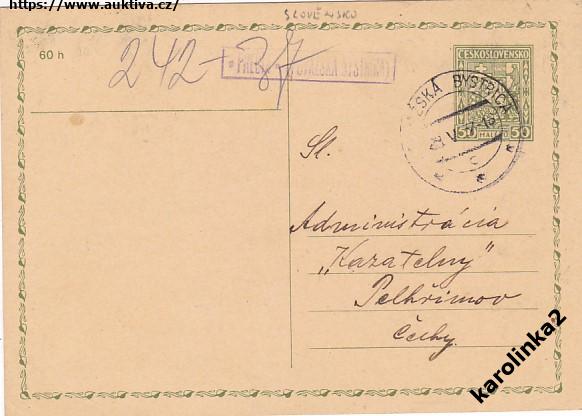 https://www.auktiva.cz/
SLOVENSKO
60 h
242-37
ČESKOSLOVENSKO
50 HALÉŘŮ 50
BYSTRICA
Sl.
Administrácia
„Kazatelny"
Pelhřimov
Čechy
karolinka2